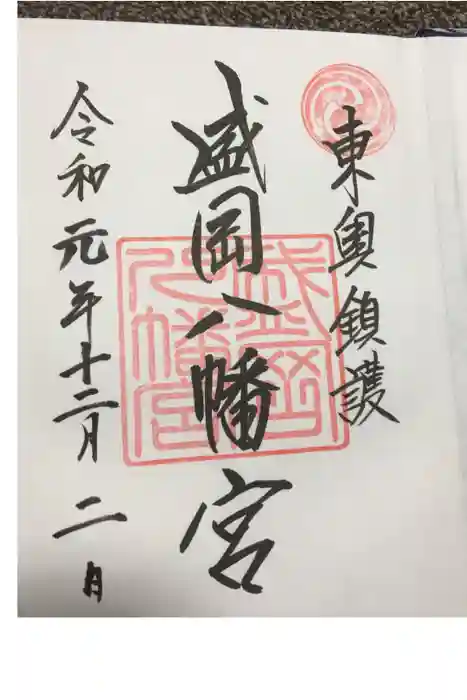 東奥鎮護
盛岡八幡宮
令和元年十二月二日
盛岡
八幡宮